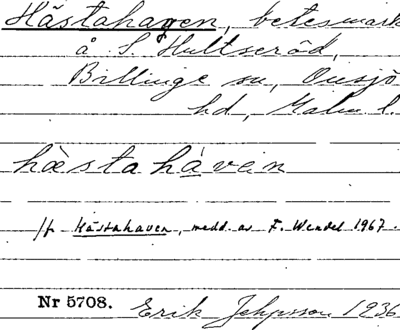 Hästahagen, betesmark
å S. Hultseröd,
Billinge sn, Onsjö
hd, Malm. l.
hàstahávën
/f Hästahaven, medd. av F. Wendel 1967.
Nr 5708. Erik Jeppsson 1936